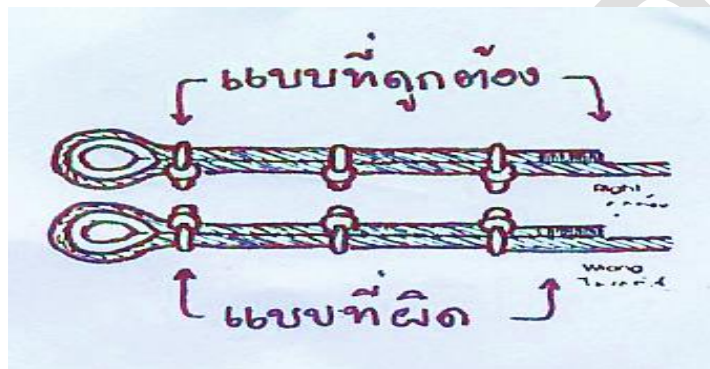 แบบที่ถูกต้อง
Right
Wrong
แบบที่ผิด